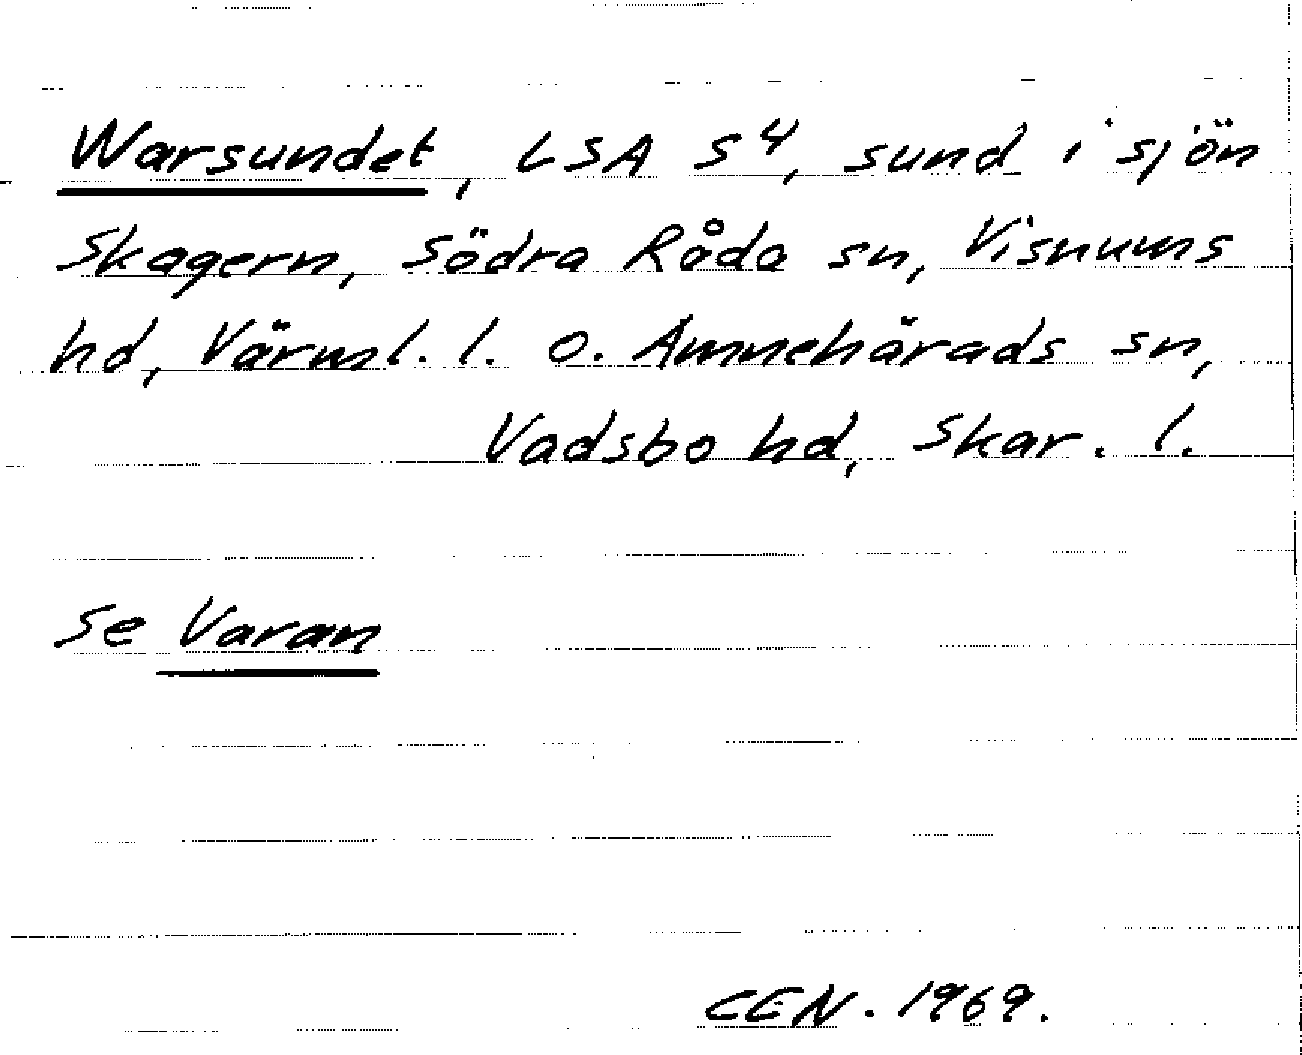 Warsundet, LSA S4, sund i sjön
Skagern, Södra Råda sn, Visnums
hd, Värml. l. o. Amnehärads sn,
Vadsbo hd, Skar. l.
Se Varan
CEN. 1969.